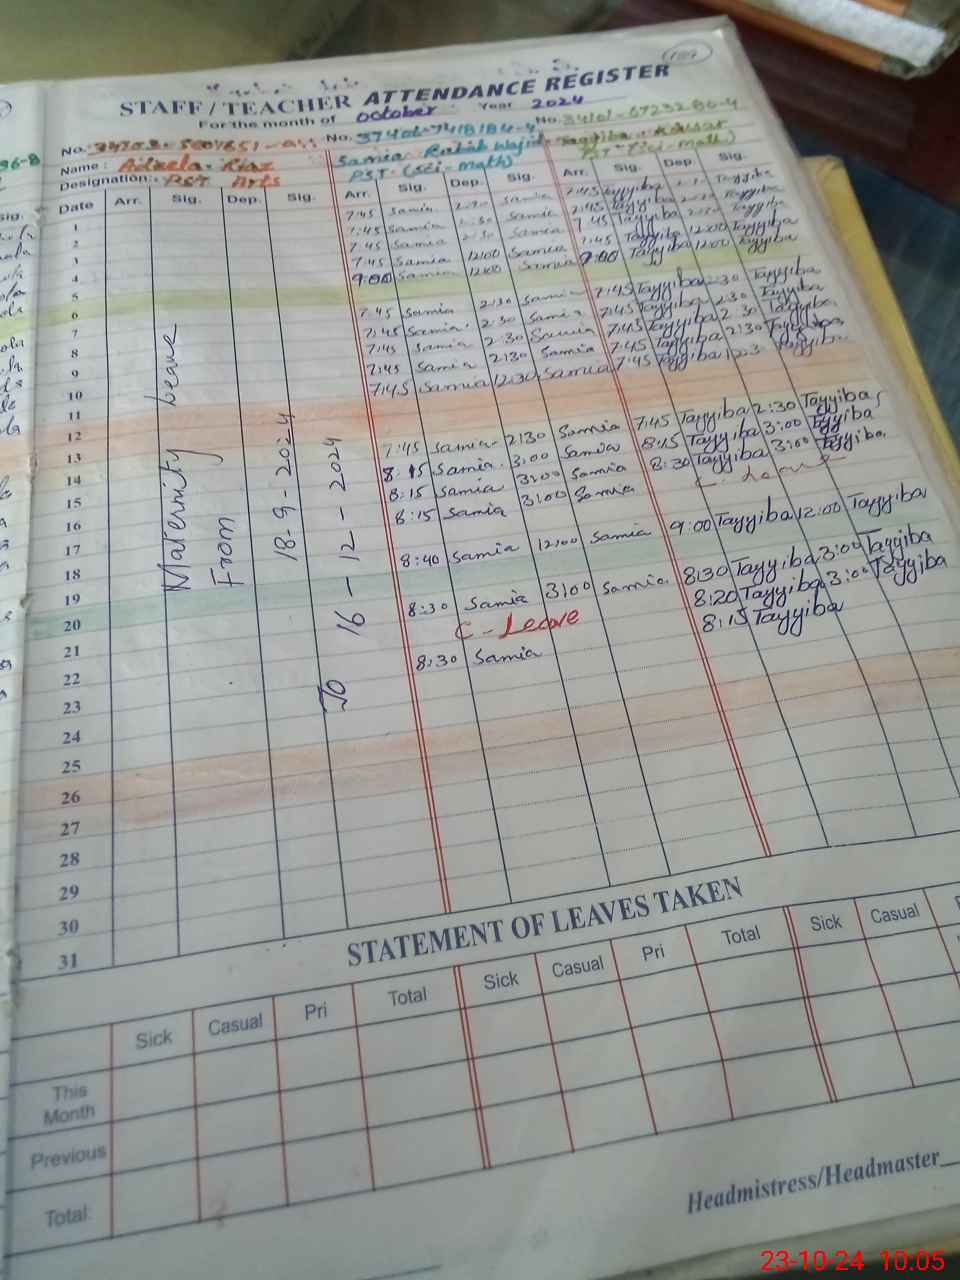 187
STAFF/TEACHER ATTENDANCE REGISTER
For the month of October Year 2024
No. No. 37406-7418184-4 No. 34101-6723286-4
Name: Adeela Riaz Samia Rabab Wajid Tayyiba Kausar
Designation: PST Arts PST (Sci-math) PST (Sci-math)
Date Arr. Sig. Dep. Sig. Arr. Sig. Dep. Sig. Arr. Sig. Dep. Sig.
1 7:45 Samia 2:30 Samia 7:45 Tayyiba Tayyiba
2 7:45 Samia 2:30 Samia 7:45 Tayyiba Tayyiba
3 7:45 Samia 2:30 Samia 7:45 Tayyiba 2:30 Tayyiba
4 7:45 Samia 12:00 Samia 7:45 Tayyiba 12:00 Tayyiba
5 9:00 Samia 12:00 Samia 9:00 Tayyiba 12:00 Tayyiba
6
7 7:45 Samia 2:30 Samia 7:45 Tayyiba 2:30 Tayyiba
8 7:45 Samia 2:30 Samia 7:45 Tayyiba 2:30 Tayyiba
9 7:45 Samia 2:30 Samia 7:45 Tayyiba 2:30 Tayyiba
10 7:45 Samia 2:30 Samia 7:45 Tayyiba 2:30 Tayyiba
11 7:45 Samia 12:30 Samia 7:45 Tayyiba Tayyiba
12
13
14 7:45 Samia 2:30 Samia 7:45 Tayyiba 2:30 Tayyiba
15 8:15 Samia 3:00 Samia 8:15 Tayyiba 3:00 Tayyiba
16 8:15 Samia 3:00 Samia 8:30 Tayyiba 3:00 Tayyiba
17 8:15 Samia 3:00 Samia C. Leave
18
19 8:40 Samia 12:00 Samia 9:00 Tayyiba 12:00 Tayyiba
20
21 8:30 Samia 3:00 Samia 8:30 Tayyiba 3:00 Tayyiba
22 C - Leave 8:20 Tayyiba 3:00 Tayyiba
23 8:30 Samia 8:15 Tayyiba
24
25
26
27
28
29
30
31
Maternity leave
From
18-9-2024
To 16-12-2024
STATEMENT OF LEAVES TAKEN
Sick Casual Pri Total Sick Casual Pri Total Sick Casual
This Month
Previous
Total:
Headmistress/Headmaster
23-10-24 10:05